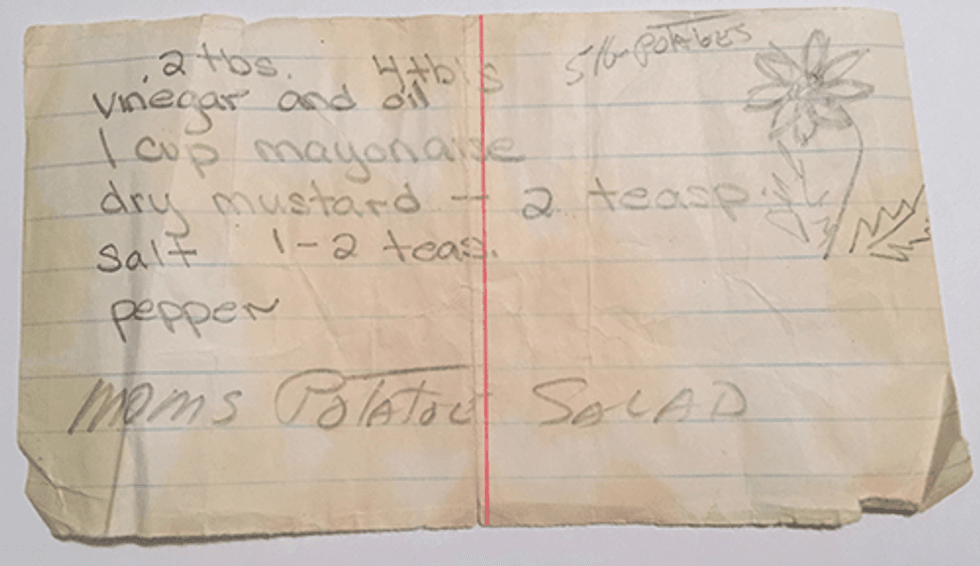 5 lb POTATOES
2 tbs. 4 tbls
vinegar and oil
1 cup mayonaise
dry mustard - 2 teasp.
salt 1-2 teas.
pepper
MOMS POTATOE SALAD